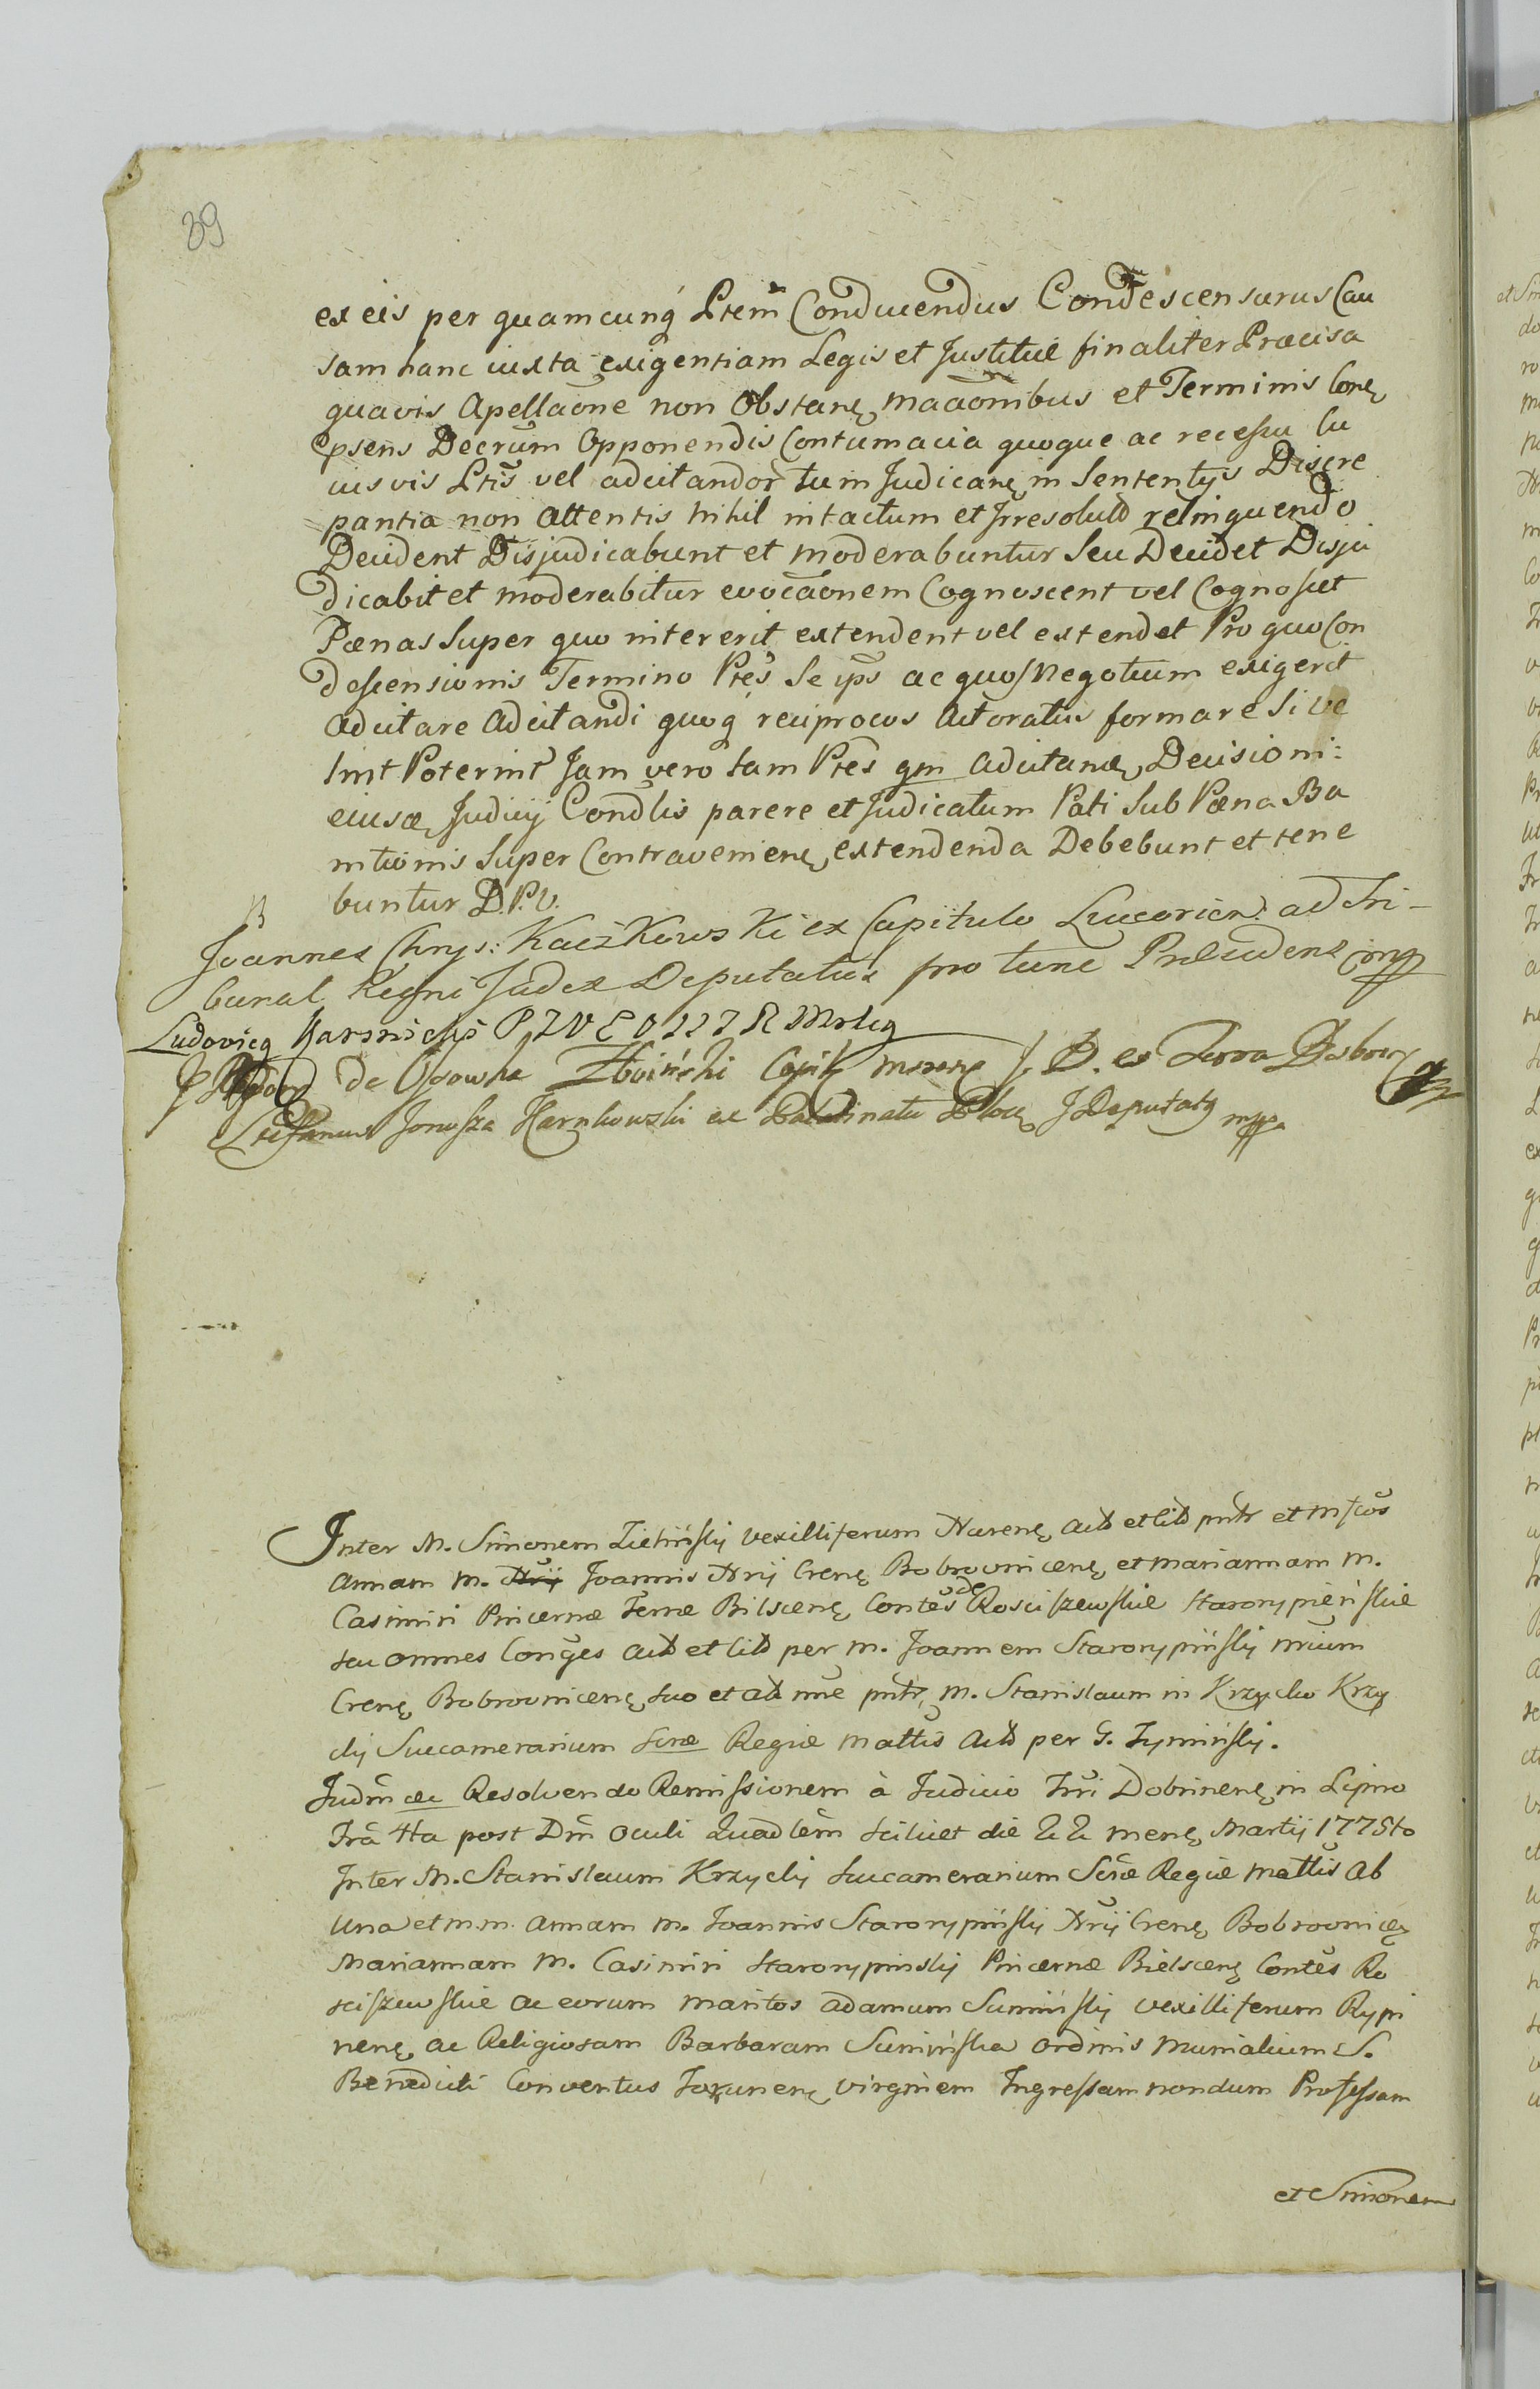 39
ex eis per quamcunq́ Ptem̃ Conducendus Condescensurus Cau
sam hanc iuxta exigentiam Legis et Justitiæ finaliter Præcisa
quavis Apellaõne non Obstanę maaõnibus et Terminis Conę
psens Decrũm Opponendis Contumacia quoque ac recessu Cu
iusvis Ptis̃ vel adcitandor̃ tum Judicanę in Sententÿs Discre
pantia non attentis nihil intactum et Irresolutũ relinquendo
Decident Disjudicabunt et moderabuntur Seu Decidet Disju
dicabit et moderabitur evocãonem Cognoscent vel Cognoscet
Pænas Super quo intererit extendent vel extendet Pro quo Con
descensionis Termino Ptes̃ Se ips̃ ac quos Negotium exigerit
adcitare adcitandi quoq́ reciprocos Actoratus formare Si ve
lint Poterint Jam vero tam Ptes̃ qm adcitanæ Decisioni:
eiusæ Judicÿ Condlis parere et Judicatum Pati Sub Pæna Ba
nitionis Super Contravenienę extendenda Debebunt et tene
buntur D.P.V.
Joannes Chrys: Kaczkowski ex Capitulo Luceorien: ad Tri-
bunal Regni Judex Deputatus pro tunc Præsidens mp
Ludovicq
de Osowka Zboiński Capit J. D. ex Terra Dobrzy
Stefanus Jonasza Karnkowski ex Palatinatu Plocę J Deputatq mppa
Inter M. Simonem Zieliński Vexilliferum Nurenę Actõ et Citõ pntr et Mfcos̃
Annam M. Joannis Nrij Crenę Bobrovnicenę et Mariannam M.
Casimiri Pincernæ Terræ Bilscenę Contes̃ de Rosciszewskie Starorypieńskie
seu omnes Conges̃ Actõ et Citõ per M. Joannem Starorypińsky nrium
Crenę Bobrovnicenę suo et alõ nne pntr, M. Stanislaum in Krzycko Krzy
cky Succamerarium Scræ Regiæ Mattis Actõ per G. Tymińsky.
Judm̃ ac Resolvendo Remissionem à Judicio Trri Dobrinenę in Lipno
Frã 4ta post Dm̃ Oculi Quadlem̃ scilicet die 22 mensę Martij 1775to
Inter M. Stanislaum Krzycky Succamerarium Scræ Regiæ Mattis ab
Una et M.M. Annam M. Joannis Starorypińsky Nrij Crenę Bobrovnicę
Mariannam M. Casimiri Starorypinsky Pincernæ Bielscenę Contes̃ Ro
sciszewskie ac eorum maritos Adamum Sumińsky Vexilliferum Rypi
nenę ac Religiosam Barbaram Sumińska Ordinis Monialium S.
Benedicti Conventus Torunenę Virginem Ingressam nondum Professam
et Simonem